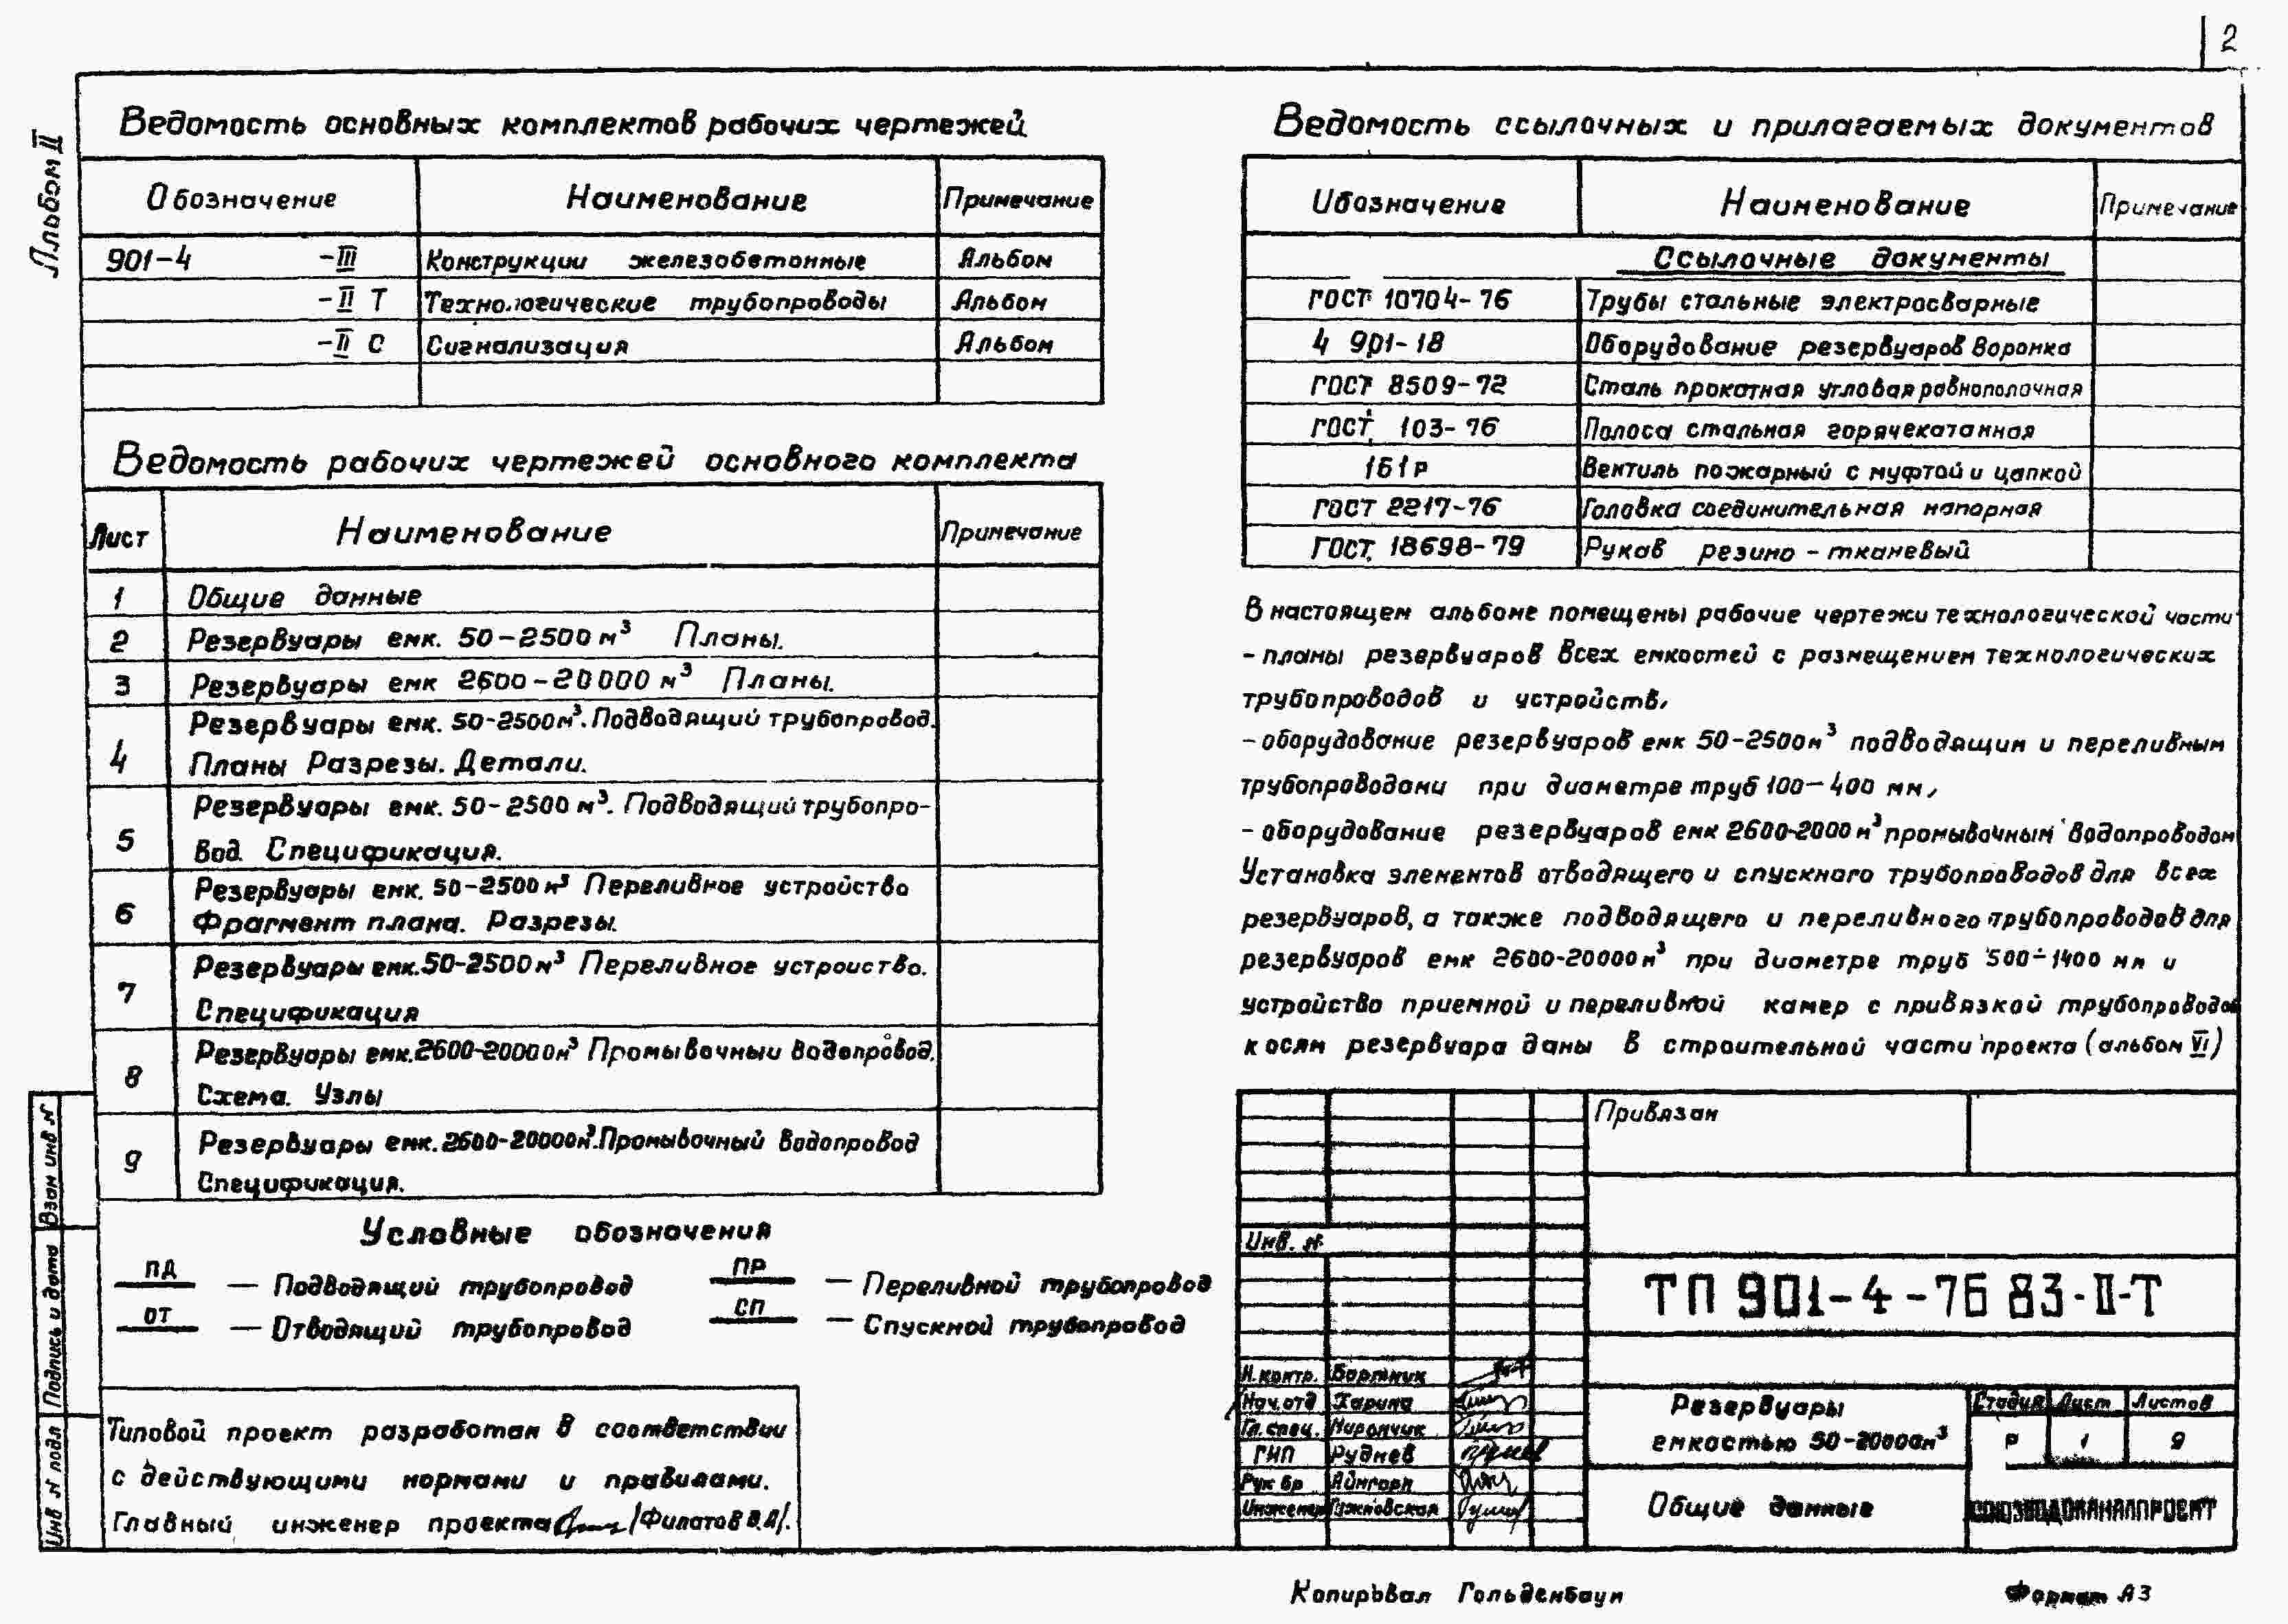 2
Альбом II
Ведомость основных комплектов рабочих чертежей
Обозначение Наименование Примечание
901-4 -III Конструкции железобетонные Альбом
-II Т Технологические трубопроводы Альбом
-II С Сигнализация Альбом
Ведомость рабочих чертежей основного комплекта
Лист Наименование Примечание
1 Общие данные
2 Резервуары емк. 50-2500 м³ Планы.
3 Резервуары емк 2600-20000 м³ Планы.
4 Резервуары емк. 50-2500м³. Подводящий трубопровод.
Планы Разрезы. Детали.
5 Резервуары емк. 50-2500 м³. Подводящий трубопро-
вод. Спецификация.
6 Резервуары емк. 50-2500м³ Переливное устройство
Фрагмент плана. Разрезы.
7 Резервуары емк. 50-2500м³ Переливное устройство.
Спецификация
8 Резервуары емк. 2600-20000м³ Промывочный водопровод.
Схема. Узлы
9 Резервуары емк. 2600-20000м³. Промывочный водопровод
Спецификация.
Условные обозначения
ПД — Подводящий трубопровод ПР — Переливной трубопровод
ОТ — Отводящий трубопровод СП — Спускной трубопровод
Типовой проект разработан в соответствии
с действующими нормами и правилами.
Главный инженер проекта /Филатов В.А/.
Взам инв N
Подпись и дата
Инв N подл
Ведомость ссылочных и прилагаемых документов
Обозначение Наименование Примечание
Ссылочные документы
ГОСТ 10704-76 Трубы стальные электросварные
4 901-18 Оборудование резервуаров Воронка
ГОСТ 8509-72 Сталь прокатная угловая равнополочная
ГОСТ 103-76 Полоса стальная горячекатанная
1б1р Вентиль пожарный с муфтой и цапкой
ГОСТ 2217-76 Головка соединительная напорная
ГОСТ. 18698-79 Рукав резино-тканевый
В настоящем альбоме помещены рабочие чертежи технологической части
- планы резервуаров всех емкостей с размещением технологических
трубопроводов и устройств,
- оборудование резервуаров емк 50-2500м³ подводящим и переливным
трубопроводами при диаметре труб 100-400 мм,
- оборудование резервуаров емк 2600-2000м³ промывочным водопроводом
Установка элементов отводящего и спускного трубопроводов для всех
резервуаров, а также подводящего и переливного трубопроводов для
резервуаров емк 2600-20000м³ при диаметре труб 500÷1400 мм и
устройство приемной и переливной камер с привязкой трубопроводов
к осям резервуара даны в строительной части проекта (альбом VI)
Привязан
Инв. N
ТП 901-4-76 83-II-Т
Н. контр. Бортник
Нач. отд Харина
Гл. спец. Мирончик
ГИП Руднев
Рук бр
Инженер
Резервуары
емкостью 50-20000м³
Стадия Лист Листов
Р 1 9
Общие данные
СОЮЗВОДОКАНАЛПРОЕКТ
Копировал Гольденбаум
Формат А3